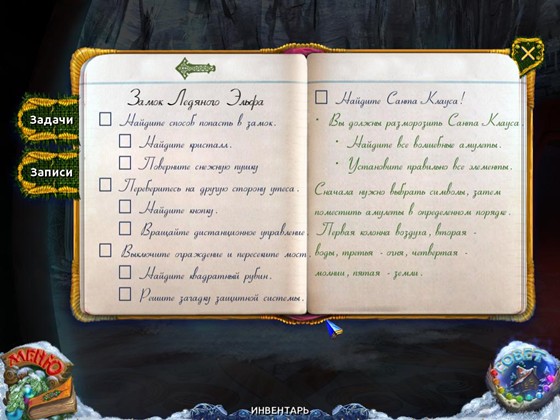 Задачи
Записи
Замок Ледяного Эльфа
Найдите способ попасть в замок.
Найдите кристалл.
Поверните снежную пушку
Переберитесь на другую сторону утеса.
Найдите кнопку.
Вращайте дистанционное управление.
Выключите ограждение и пересеките мост.
Найдите квадратный рубин.
Решите загадку защитной системы.
Найдите Санта Клауса!
• Вы должны разморозить Санта Клауса.
• Найдите все волшебные амулеты.
• Установите правильно все элементы.
Сначала нужно выбрать символы, затем
поместить амулеты в определенном порядке.
Первая колонна воздуха, вторая -
воды, третья - огня, четвертая -
молнии, пятая - земли.
МЕНЮ
ИНВЕНТАРЬ
СОВЕТ